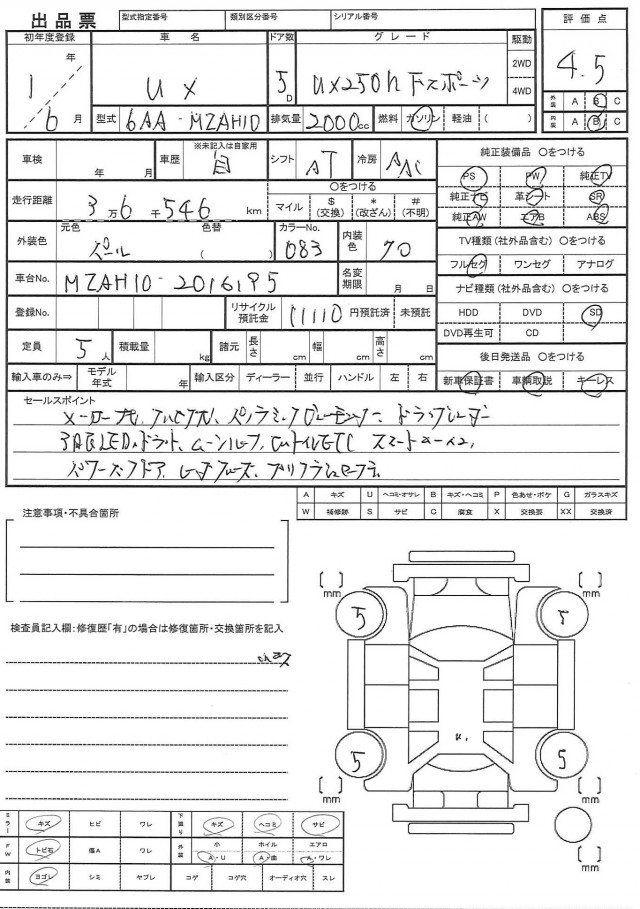 出品票 型式指定番号 類別区分番号 シリアル番号
初年度登録 車名 ドア数 グレード 駆動 評価点
1年 UX 5D UX250h Fスポーツ 2WD 4.5
4WD
6月 型式 6AA-MZAH10 排気量 2000cc 燃料 ガソリン 軽油 ( )
外装 A B C
内装 A B C
車検 年 月 車歴 ※未記入は自家用 自 シフト AT 冷房 AAC
走行距離 3万6千546km ○をつける
マイル $(交換) *(改ざん) #(不明)
外装色 元色 パール 色替 ( ) カラーNo. 083 内装色 70
車台No. MZAH10-2016195 名変期限 月 日
登録No. リサイクル預託金 11110円預託済 未預託
定員 5人 積載量 kg 諸元 長さ cm 幅 cm 高さ cm
輸入車のみ⇒ モデル年式 年 輸入区分 ディーラー 並行 ハンドル 左 右
純正装備品 ○をつける
PS PW 純正TV
純正ナビ 革シート SR
純正AW エアB ABS
TV種類(社外品含む) ○をつける
フルセグ ワンセグ アナログ
ナビ種類(社外品含む) ○をつける
HDD DVD SD
DVD再生可 CD
後日発送品 ○をつける
新車保証書 車輌取説 キーレス
セールスポイント
3眼LED
ムーンルーフ
ETC
A キズ U ヘコミ・オサレ B キズ・ヘコミ P 色あせ・ボケ G ガラスキズ
W 補修跡 S サビ C 腐食 X 交換要 XX 交換済
注意事項・不具合箇所
検査員記入欄:修復歴「有」の場合は修復箇所・交換箇所を記入
[ ]mm [ ]mm
5 5
5 5
[ ]mm [ ]mm
[ ]mm
ミラー キズ ヒビ ワレ 下廻り キズ ヘコミ サビ
FW トビ石 傷A ワレ 外装 小 A・U ホイル A・曲 エアロ A・ワレ
内装 ヨゴレ シミ ヤブレ コゲ コゲ穴 オーディオ穴 スレ